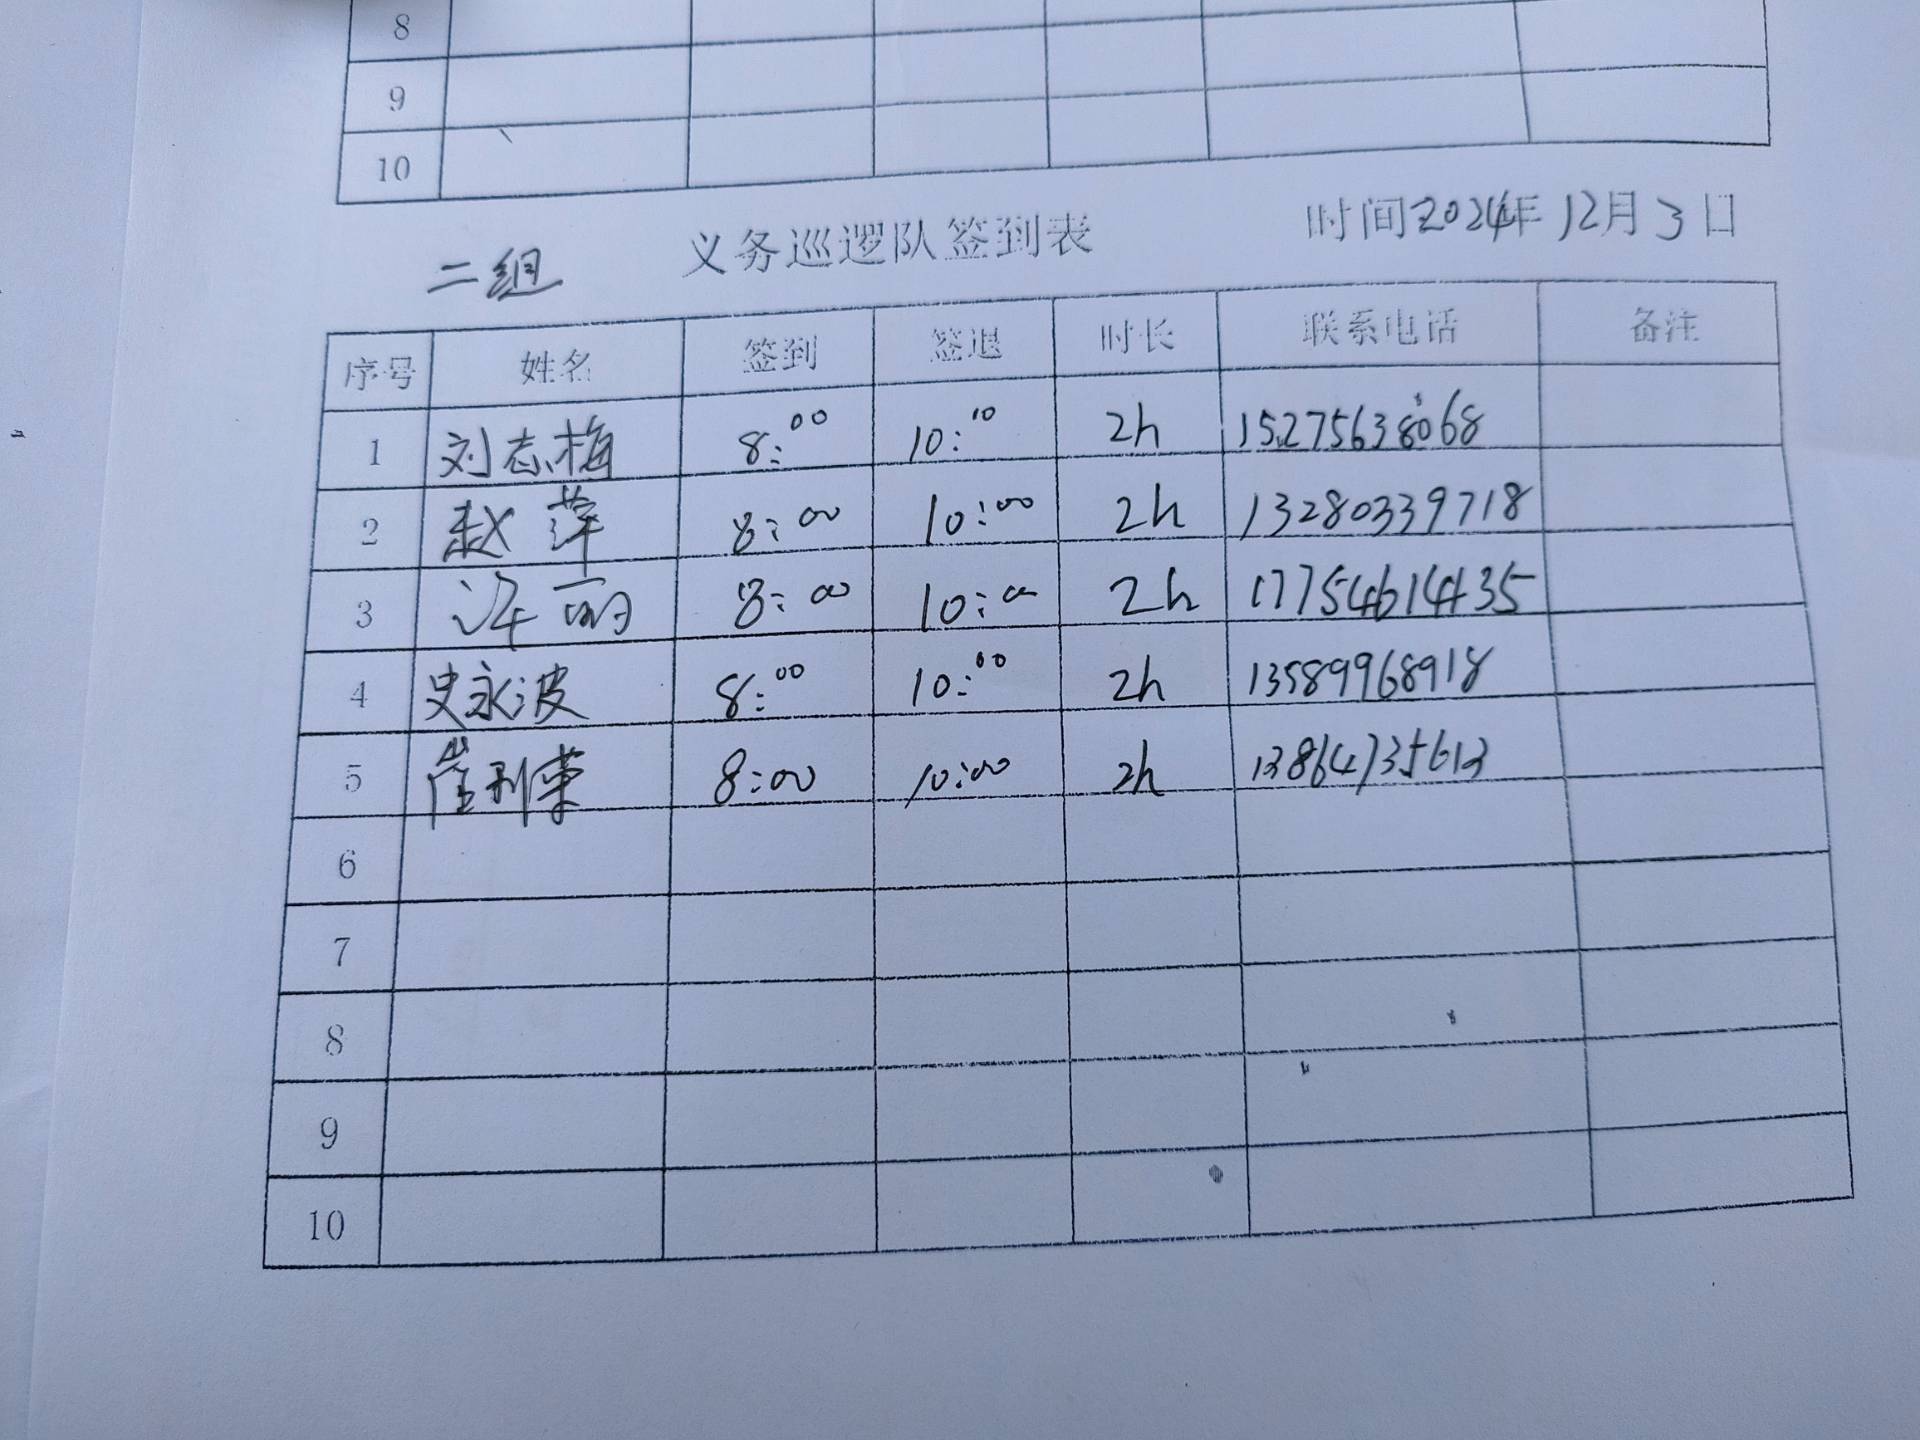 8
9
10
二组 义务巡逻队签到表 时间2024年12月3日
序号 姓名 签到 签退 时长 联系电话 备注
1 刘志梅 8:00 10:10 2h 15275638068
2 赵萍 8:00 10:00 2h 13280339718
3 许丽 8:00 10:00 2h 17754614435
4 史永波 8:00 10:00 2h 13589968918
5 崔利荣 8:00 10:00 2h 13864735613
6
7
8
9
10